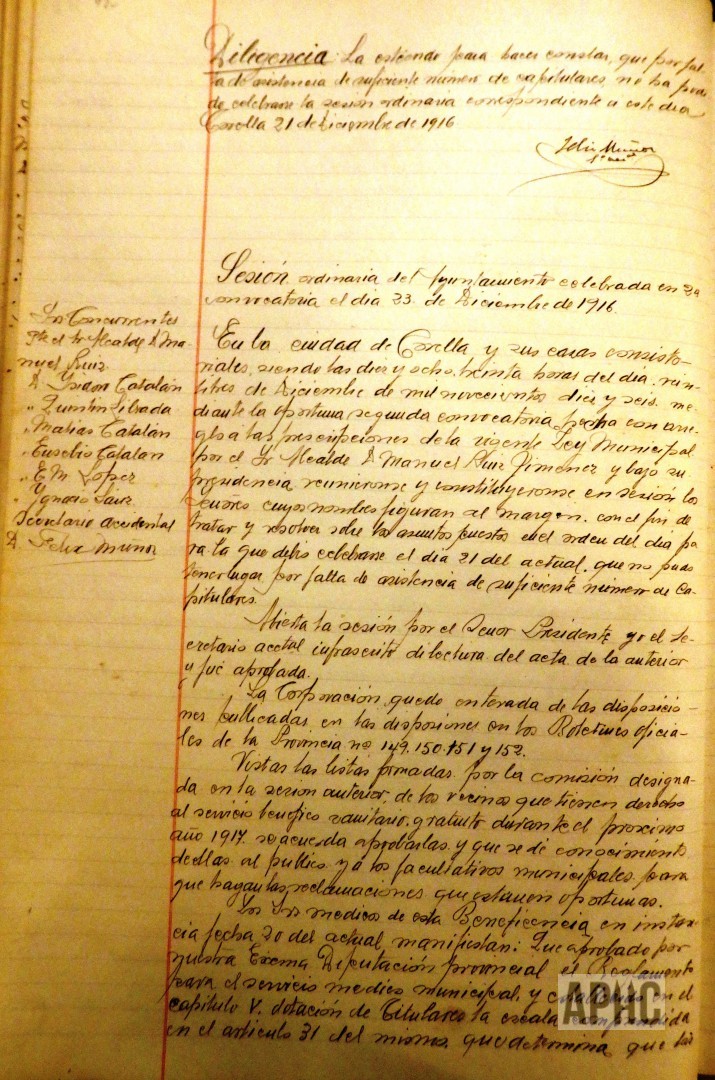 Diligencia. La estiendo para hacer constar, que por fal
ta de asistencia de suficiente número de capitulares, no ha podi
do celebrarse la sesión ordinaria correspondiente a este dia
Corella 21 de Diciembre de 1916
Felix Muñoz
Sesión ordinaria del Ayuntamiento celebrada en 2ª
convocatoria el dia 23 de Diciembre de 1916.
Srs Concurrentes
Pte el Sr Alcalde D Ma-
nuel Ruiz
D Isidoro Catalán
" Quintin Librada
" Matias Catalán
" Eusebio Catalan
" E. M. López
" Ygnacio Sanz
Secretario accidental
D. Felix Muñoz
En la ciudad de Corella y sus casas consisto-
riales, siendo las diez y ocho treinta horas del dia vein-
titres de Diciembre de mil novecientos diez y seis, me-
diante la oportuna segunda convocatoria hecha con arre-
glo a las prescripciones de la vigente Ley Municipal
por el Sr Alcalde D Manuel Ruiz Jimenez y bajo su
presidencia reunieronse y constituyeronse en sesión los
Señores cuyos nombres figuran al margen, con el fin de
tratar y resolver sobre los asuntos puestos en el orden del dia pa
ra la que debió celebrarse el dia 21 del actual, que no pudo
tener lugar por falta de asistencia de suficiente número de ca-
pitulares.
Abierta la sesión por el Señor Presidente yo el Se-
cretario acctal infrascrito di lectura del acta de la anterior
y fué aprobada.
La Corporación quedó enterada de las disposicio-
nes publicadas en las disposiones en los Boletines oficia-
les de la Provincia nº 149. 150. 151 y 152.
Vistas las listas formadas por la comisión designa-
da en la sesión anterior, de los vecinos que tienen derecho
al servicio benefico sanitario gratuito durante el proximo
año 1917 se acuerda aprobarlas y que se dé conocimiento
de ellas al publico y a los facultativos municipales para
que hagan las reclamaciones que estimen oportunas.
Los Srs medicos de esta Beneficencia en instan-
cia fecha 20 del actual manifiestan: Que aprobado por
nuestra Excma Diputación provincial el Reglamento
para el servicio medico municipal, y en el
capitulo V. dotación de Titulares la escala comprendida
en el articulo 31 del mismo, que determina que los
APHC